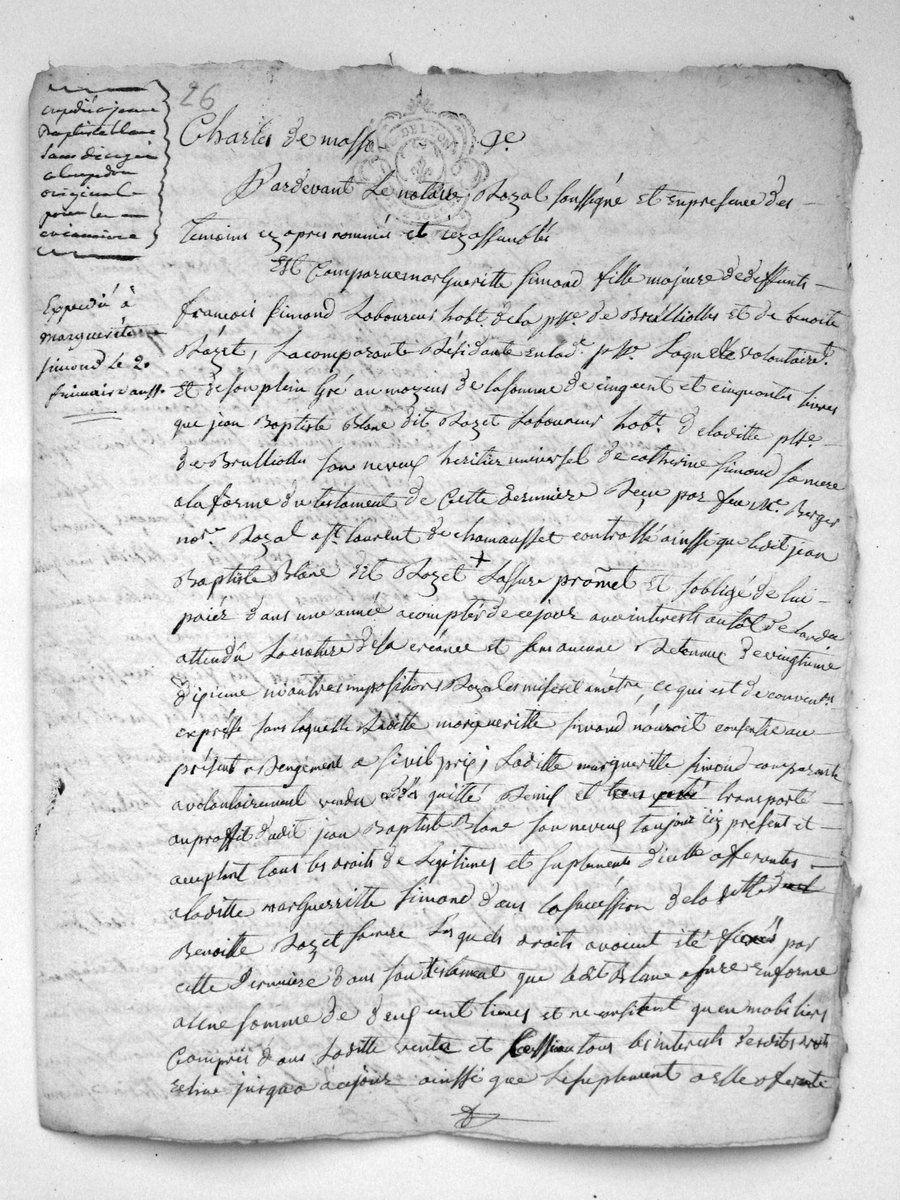 expedié a jean
Baptiste blanc
original
pour la
Expedié à
Marguerite
simond le 2.
frimaire
26
Chartes de masso
Pardevant Le notaire Royal soussigné et enpresence des
temoins cy apres nommés et
Est Comparue margueritte Simond fille majeure de deffunts
francois Simond Laboureur habt. de la psse. de Brulliolles et de benoite
Razet, La comparante Résidante en lade. psse. Laquelle volontairet.
Et de son plein Gré au moyens de la somme de cinqcent et cinquantes Livres
que jean Baptiste Blanc dit Razet Laboureur habt. de laditte psse.
de Brulliolles son neveux heritier universel de catherine Simond sa mere
a la forme du testament de Cette derniere Reçu par feu Me. Berger
nore. Royal a St. laurent de chamousset controllé ainssi que ledit jean
Baptiste Blanc dit Razet + Lassure promet et sobligé de lui
paier dans une année a compter de ce jour avec interests au
attendu La nature de la créance et sans aucune Retenue de vingtieme
dixieme ni autres impositions Royales mises et a métre, ce qui est de conventn.
expresse sans laquelle Laditte margueritte Simond n'auroit consentie au
présent a Sivil prix; Laditte margueritte Simond comparante
a volontairement vendu quitté Remis et transporté
au proffit dudit jean Baptiste Blanc son neveux toujour icy présent et
acceptant tous les droits de Legitimes et suplements d'icelle afferantes
a laditte marguerritte Simond dans la succéssion de la ditte
Benoitte Razet sa mere Lesquels droits avoient été fixés par
cette Derniere dans son testament que ledit Blanc assure en forme
a une somme de deux cent livres et ne consistent qu'en mobiliers
Compris dans Laditte vente et Cession tous les interests desdits droits
jusqua a cejour ainssi que Le suplement a elle afferante